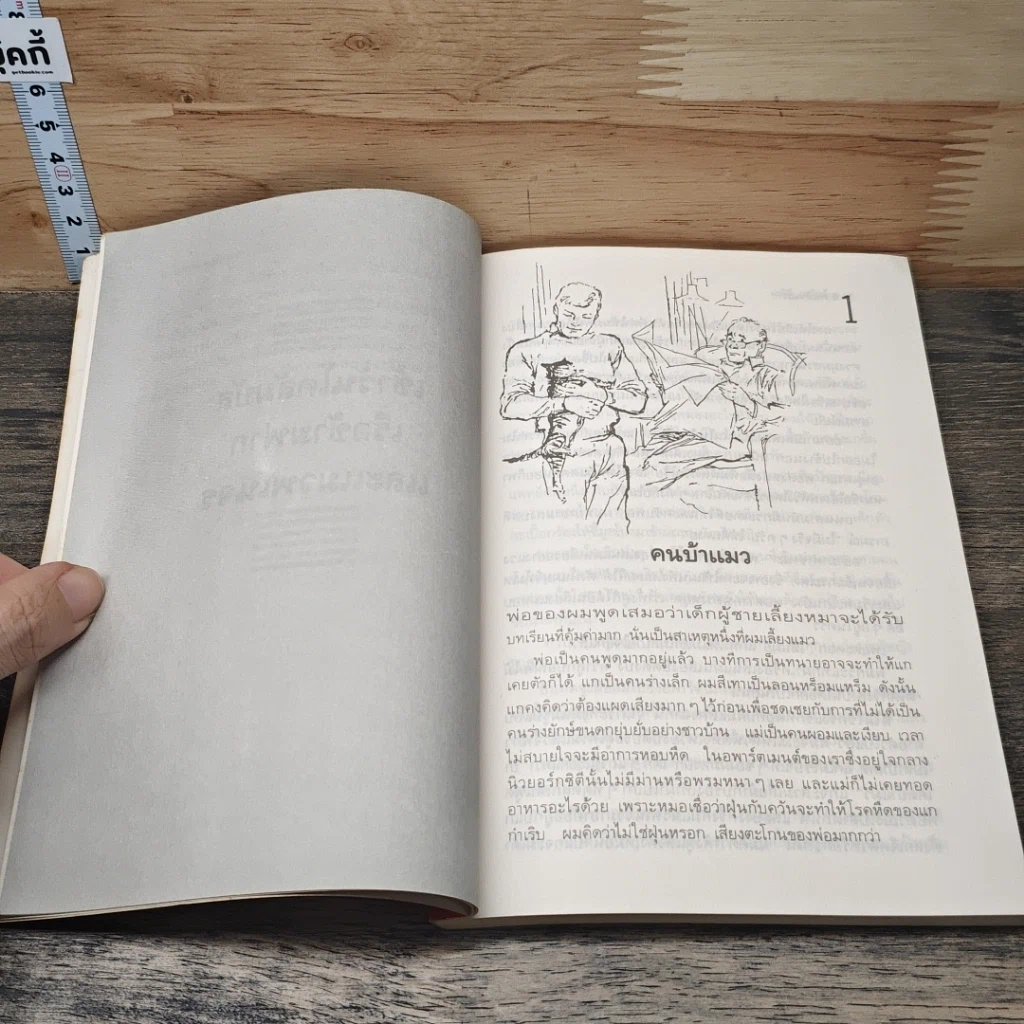 บุ๊คกี้
getbookie.com
6
5
4
3
2
1
1
คนบ้าแมว
พ่อของผมพูดเสมอว่าเด็กผู้ชายเลี้ยงหมาจะได้รับ
บทเรียนที่คุ้มค่ามาก นั่นเป็นสาเหตุหนึ่งที่ผมเลี้ยงแมว
พ่อเป็นคนพูดมากอยู่แล้ว บางทีการเป็นทนายอาจจะทำให้แก
เคยตัวก็ได้ แกเป็นคนร่างเล็ก ผมสีเทาเป็นลอนหร็อมแหร็ม ดังนั้น
แกคงคิดว่าต้องแผดเสียงมาก ๆ ไว้ก่อนเพื่อชดเชยกับการที่ไม่ได้เป็น
คนร่างยักษ์ขนดกยุ่บยั่บอย่างชาวบ้าน แม่เป็นคนผอมและเงียบ เวลา
ไม่สบายใจจะมีอาการหอบหืด ในอพาร์ตเมนต์ของเราซึ่งอยู่ใจกลาง
นิวยอร์กซิตีนั้นไม่มีม่านหรือพรมหนา ๆ เลย และแม่ก็ไม่เคยทอด
อาหารอะไรด้วย เพราะหมอเชื่อว่าฝุ่นกับควันจะทำให้โรคหืดของแก
กำเริบ ผมคิดว่าไม่ใช่ฝุ่นหรอก เสียงตะโกนของพ่อมากกว่า